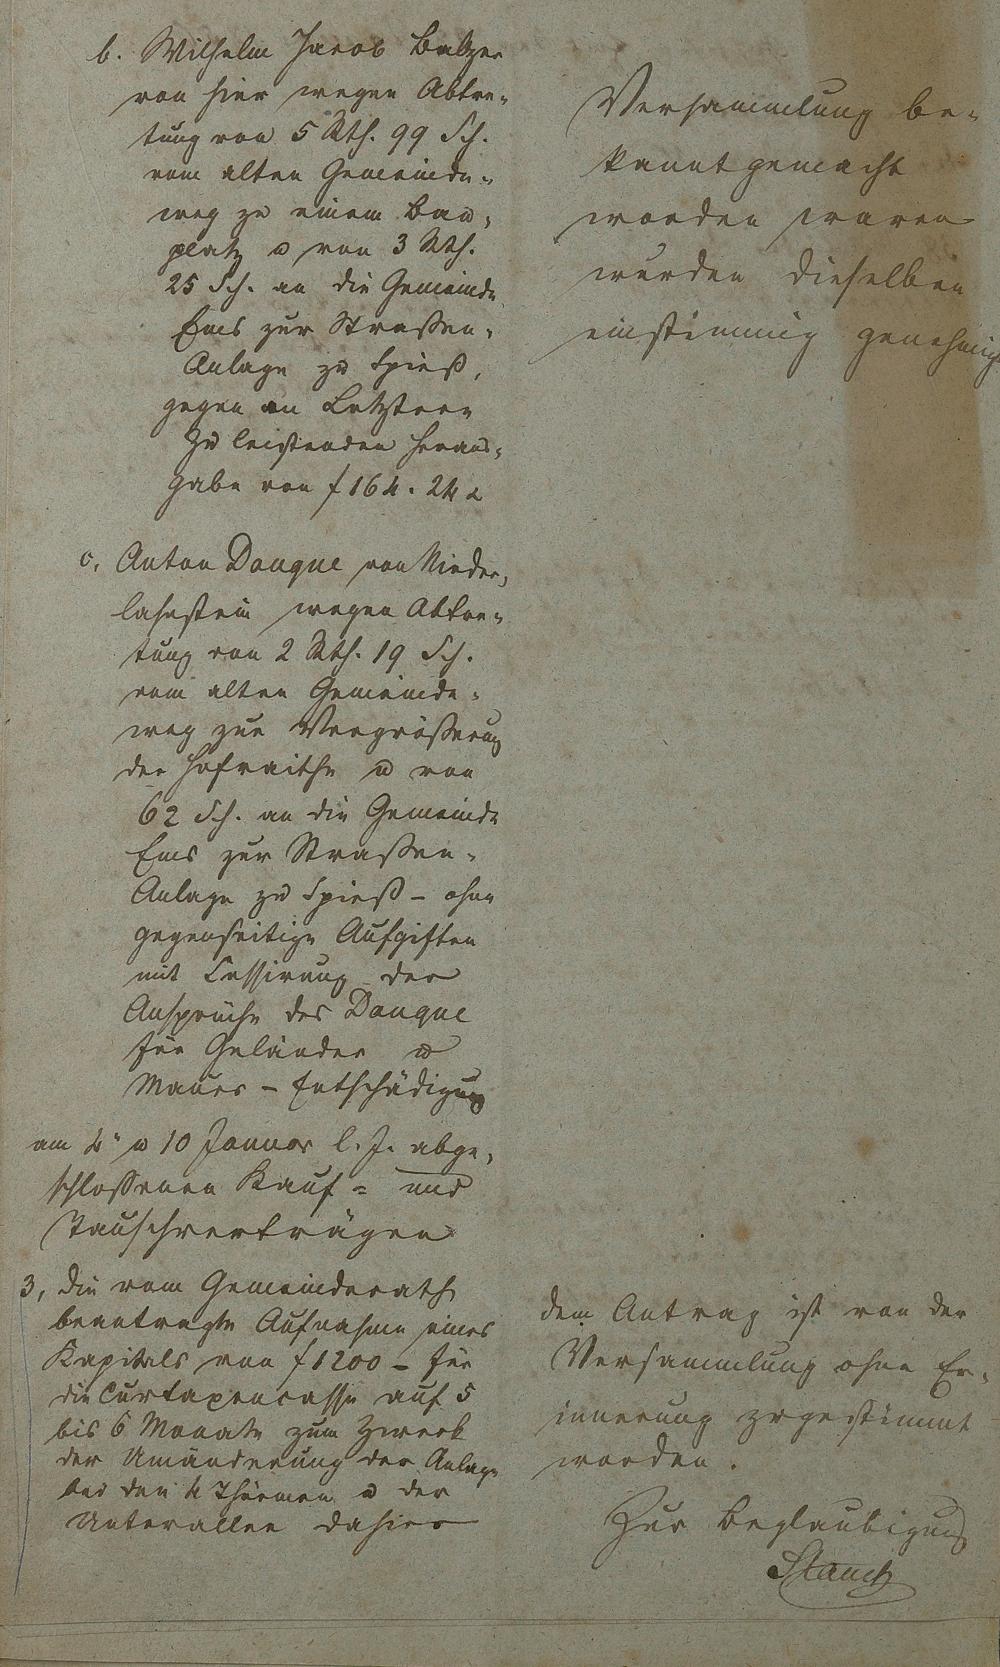 b. Wilhelm Jacob Balzer
von hier wegen Abtre-
tung von 5 Rth. 99 Sch.
vom alten Gemeinde-
weg zu einem Bau-
platz u von 3 Rth.
25 Sch. an die Gemeinde
Ems zur Straßen-
Anlage zu Spieß,
gegen an Letztern
zu leistenden Heraus-
gabe von f 164. 24 x
c. Anton Douque von Nieder-
lahnstein wegen Abtre-
tung von 2 Rth. 19 Sch.
vom alten Gemeinde-
weg zur Vergrößerung
der Hofraithe u von
62 Sch. an die Gemeinde
Ems zur Straßen-
Anlage zu Spieß - ohne
gegenseitige Aufgiften
mit Cessirung der
Ansprüche des Douque
für Geländer u
Mauer - Entschädigung
am 4n u 10 Januar l. J. abge-
schlossenen Kauf - und
Tauschverträgen
3, die vom Gemeinderath
beantragte Aufnahme eines
Kapitals von f 1200 - für
die Curtaxencasse auf 5
bis 6 Monate zum Zweck
der Umänderung der Anlage
bei den 4 Thürmen u der
Unterallee dahier
Versammlung be-
kannt gemacht
worden waren
wurden dieselben
einstimmig genehmigt
dem Antrag ist von der
Versammlung ohne Er-
innerung zugestimmt
worden.
Zur Beglaubigung
Stauch